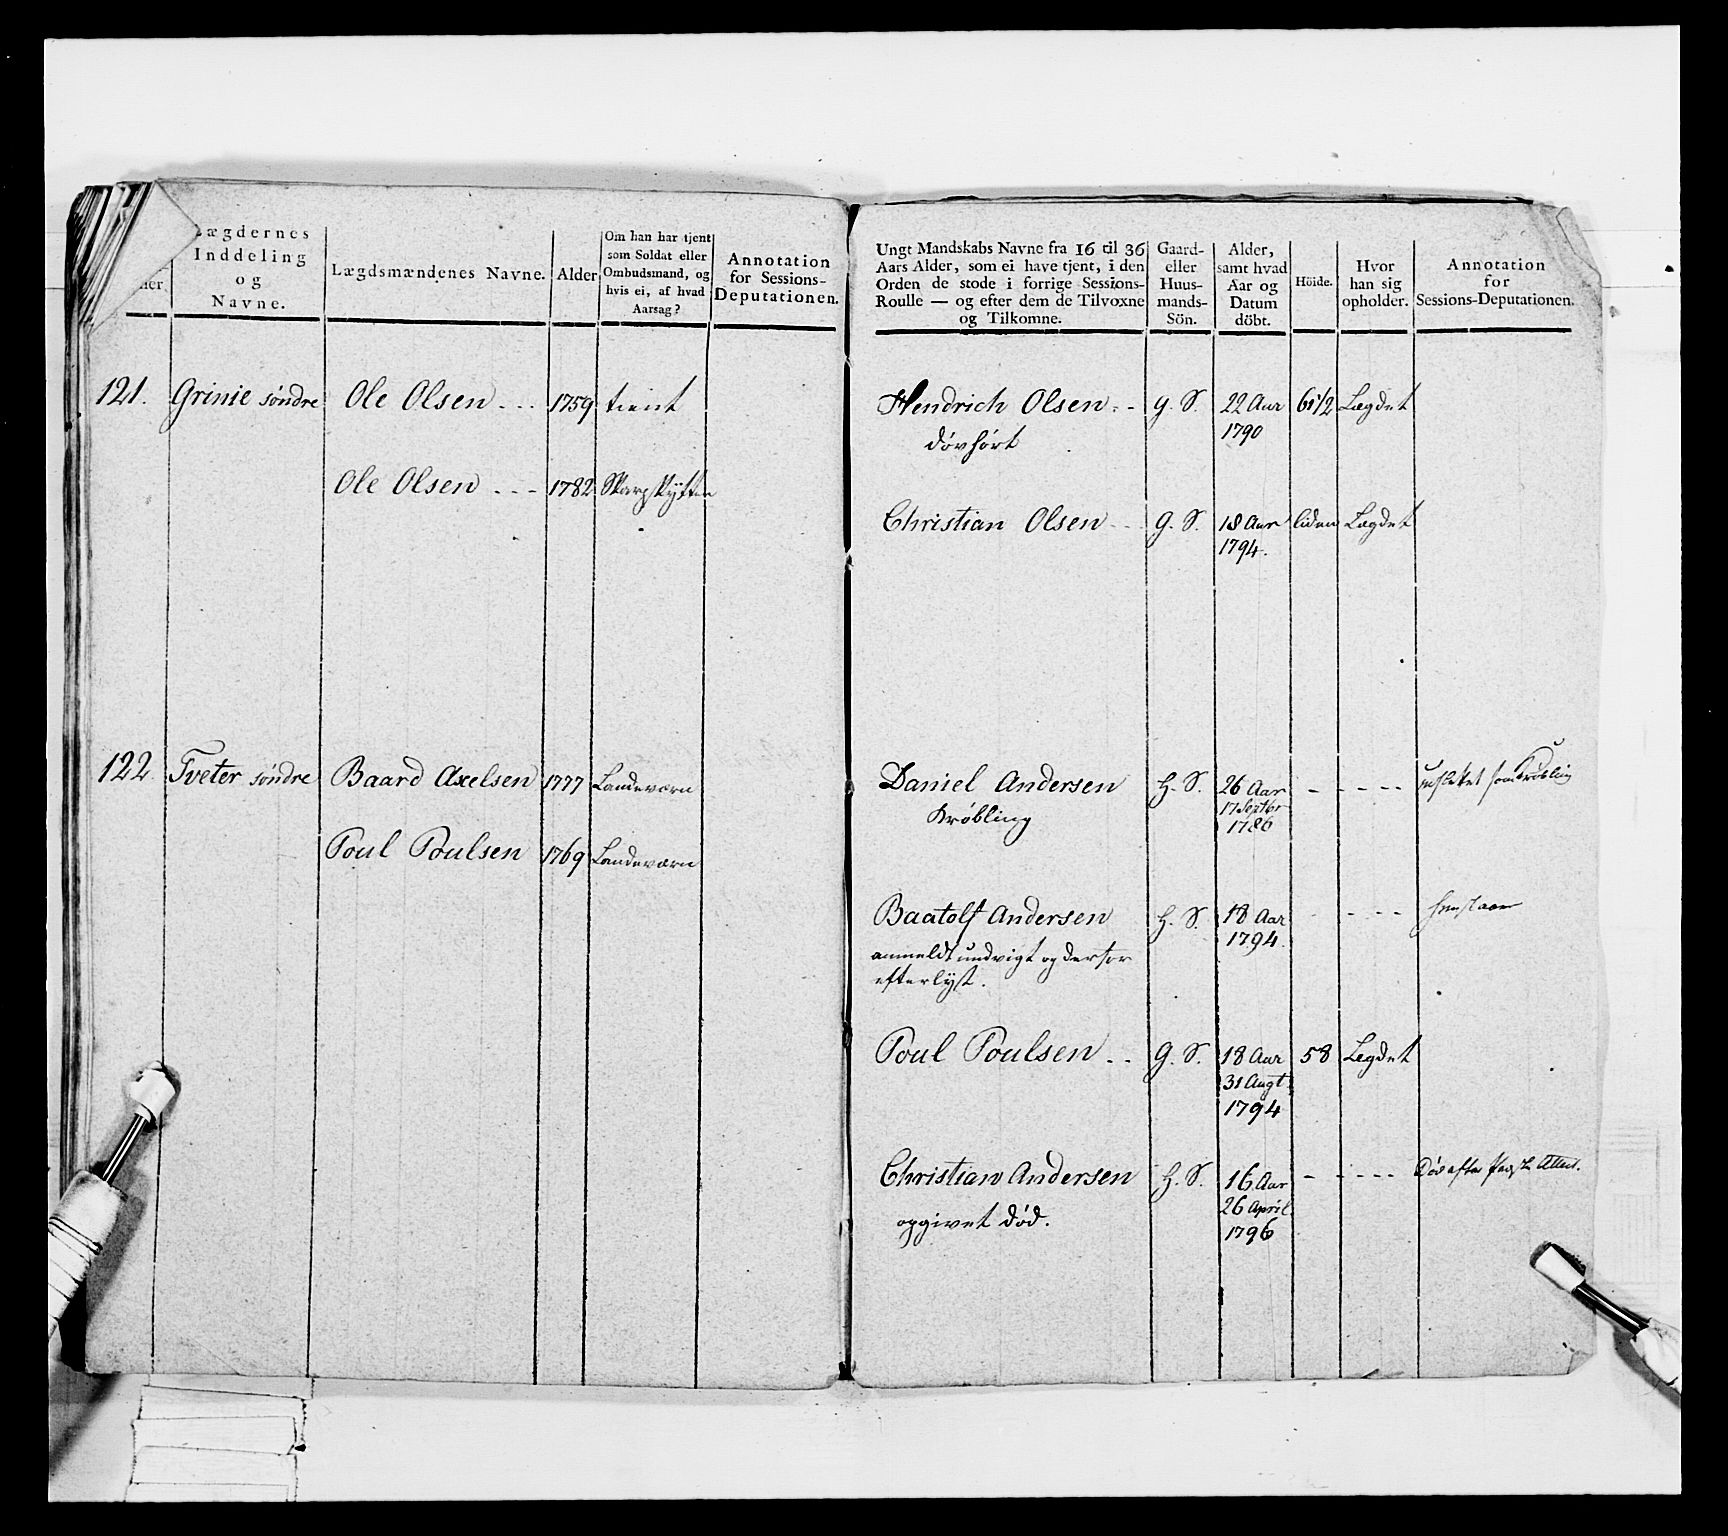 Lægdernes
Inddeling
og
Navne.
Lægdsmændenes Navne.
Alder
Om han har tjent
som Soldat eller
Ombudsmand, og
hvis ei, af hvad
Aarsag?
Annotation
for Sessions-
Deputationen.
121. Grinie søndre Ole Olsen 1759 tient
Ole Olsen 1782 Skarpskytter
122 Tveter søndre Baard Axelsen 1777 Landeværn
Poul Poulsen 1769 Landeværn
Ungt Mandskabs Navne fra 16 til 36
Aars Alder, som ei have tjent, i den
Orden de stode i forrige Sessions-
Roulle — og efter dem de Tilvoxne
og Tilkomne.
Gaard-
eller
Huus-
mands-
Sön.
Alder,
samt hvad
Aar og
Datum
döbt.
Höide.
Hvor
han sig
opholder.
Annotation
for
Sessions-Deputationen.
Hendrich Olsen g. S. 22 Aar 61½ Lægdet
døvhørt 1790
Christian Olsen g. S. 18 Aar liden Lægdet
1794.
Daniel Andersen H. S. 26 Aar - - - - -
Krøbling 17 Septbr
1786
Baatolf Andersen H. S. 18 Aar - - - -
1794.
anmeldt undvigt og derfor
efterlyst.
Poul Poulsen G. S. 18 Aar 58 Lægdet
31 Augt
1794
Christian Andersen H. S. 16 Aar - - - - - Død efter Attest.
26 April
opgivet død. 1796